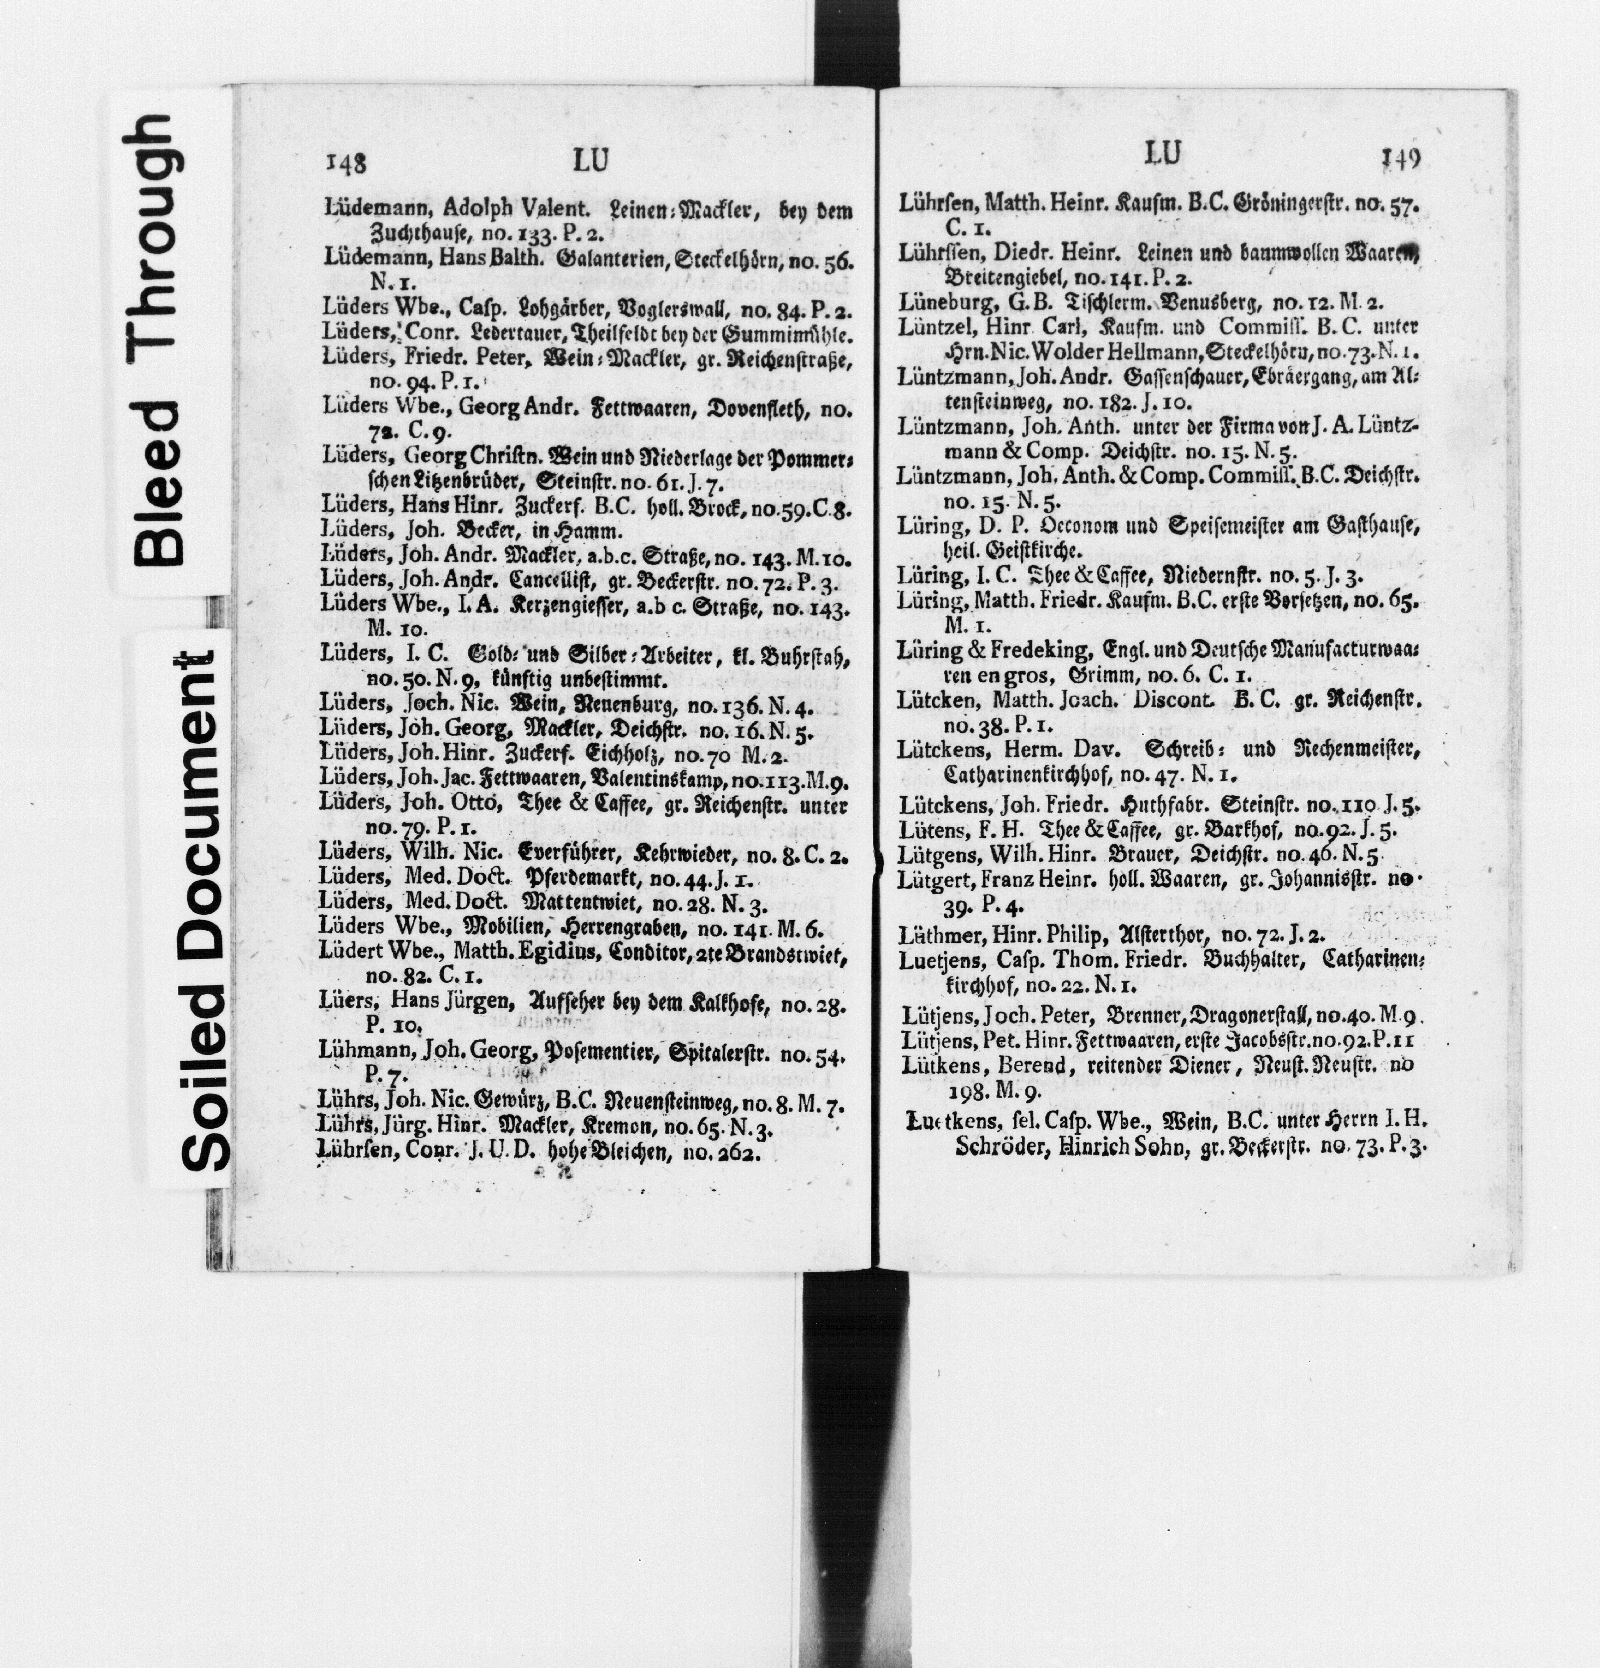 Bleed Through
Soiled Document
148 LU
Lüdemann, Adolph Valent. Leinen-Mackler, bey dem
Zuchthause, no. 133. P. 2.
Lüdemann, Hans Balth. Galanterien, Steckelhörn, no. 56.
N. 1.
Lüders Wbe., Casp. Lohgärber, Voglerswall, no. 84. P. 2.
Lüders, Conr. Ledertauer, Theilfeldt bey der Gummimühle.
Lüders, Friedr. Peter, Wein-Mackler, gr. Reichenstraße,
no. 94. P. 1.
Lüders Wbe., Georg Andr. Fettwaaren, Dovenfleth, no.
72. C. 9.
Lüders, Georg Christn. Wein und Niederlage der Pommer-
schen Litzenbrüder, Steinstr. no. 61. J. 7.
Lüders, Hans Hinr. Zuckerf. B.C. holl. Brock, no. 59. C. 8.
Lüders, Joh. Becker, in Hamm.
Lüders, Joh. Andr. Mackler, a.b.c. Straße, no. 143. M. 10.
Lüders, Joh. Andr. Cancellist, gr. Beckerstr. no. 72. P. 3.
Lüders Wbe., I. A. Kerzengiesser, a.b c. Straße, no. 143.
M. 10.
Lüders, I. C. Gold- und Silber-Arbeiter, kl. Buhrstah,
no. 50. N. 9, künftig unbestimmt.
Lüders, Joch. Nic. Wein, Neuenburg, no. 136. N. 4.
Lüders, Joh. Georg, Mackler, Deichstr. no. 16. N. 5.
Lüders, Joh. Hinr. Zuckerf. Eichholz, no. 70 M. 2.
Lüders, Joh. Jac. Fettwaaren, Valentinskamp, no. 113. M. 9.
Lüders, Joh. Otto, Thee & Caffee, gr. Reichenstr. unter
no. 79. P. 1.
Lüders, Wilh. Nic. Everführer, Kehrwieder, no. 8. C. 2.
Lüders, Med. Doct. Pferdemarkt, no. 44. J. 1.
Lüders, Med. Doct. Mattentwiet, no. 28. N. 3.
Lüders Wbe., Mobilien, Herrengraben, no. 141. M. 6.
Lüdert Wbe., Matth. Egidius, Conditor, 2te Brandstwiet,
no. 82. C. 1.
Lüers, Hans Jürgen, Aufseher bey dem Kalkhofe, no. 28.
P. 10.
Lühmann, Joh. Georg, Posementier, Spitalerstr. no. 54.
P. 7.
Lührs, Joh. Nic. Gewürz, B.C. Neuensteinweg, no. 8. M. 7.
Lührs, Jürg. Hinr. Mackler, Kremon, no. 65. N. 3.
Lührsen, Conr. J. U. D. hohe Bleichen, no. 262.
LU 149
Lührsen, Matth. Heinr. Kaufm. B.C. Gröningerstr. no. 57.
C. 1.
Lührssen, Diedr. Heinr. Leinen und baumwollen Waaren,
Breitengiebel, no. 141. P. 2.
Lüneburg, G. B. Tischlerm. Venusberg, no. 12. M. 2.
Lüntzel, Hinr. Carl, Kaufm. und Commiss. B. C. unter
Hrn. Nic. Wolder Hellmann, Steckelhörn, no. 73. N. 1.
Lüntzmann, Joh. Andr. Gassenschauer, Ebräergang, am Al-
tensteinweg, no. 182. J. 10.
Lüntzmann, Joh. Anth. unter der Firma von J. A. Lüntz-
mann & Comp. Deichstr. no. 15. N. 5.
Lüntzmann, Joh. Anth. & Comp. Commiss. B.C. Deichstr.
no. 15. N. 5.
Lüring, D. P. Oeconom und Speisemeister am Gasthause,
heil. Geistkirche.
Lüring, I. C. Thee & Caffee, Niedernstr. no. 5. J. 3.
Lüring, Matth. Friedr. Kaufm. B.C. erste Vorsetzen, no. 65.
M. 1.
Lüring & Fredeking, Engl. und Deutsche Manufacturwaa-
ren en gros, Grimm, no. 6. C. 1.
Lütcken, Matth. Joach. Discont. B. C. gr. Reichenstr.
no. 38. P. 1.
Lütckens, Herm. Dav. Schreib- und Rechenmeister,
Catharinenkirchhof, no. 47. N. 1.
Lütckens, Joh. Friedr. Huthfabr. Steinstr. no. 110 J. 5.
Lütens, F. H. Thee & Caffee, gr. Barkhof, no. 92. J. 5.
Lütgens, Wilh. Hinr. Brauer, Deichstr. no. 46. N. 5
Lütgert, Franz Heinr. holl. Waaren, gr. Johannisstr. no.
39. P. 4.
Läthmer, Hinr. Philip, Alsterthor, no. 72. J. 2.
Luetjens, Casp. Thom. Friedr. Buchhalter, Catharinen-
kirchhof, no. 22. N. 1.
Lütjens, Joch. Peter, Brenner, Dragonerstall, no. 40. M. 9.
Lütjens, Pet. Hinr. Fettwaaren, erste Jacobsstr. no. 92. P. 11
Lütkens, Berend, reitender Diener, Neust. Neustr. no
198. M. 9.
Luetkens, sel. Casp. Wbe., Wein, B.C. unter Herrn I. H.
Schröder, Hinrich Sohn, gr. Beckerstr. no. 73. P. 3.